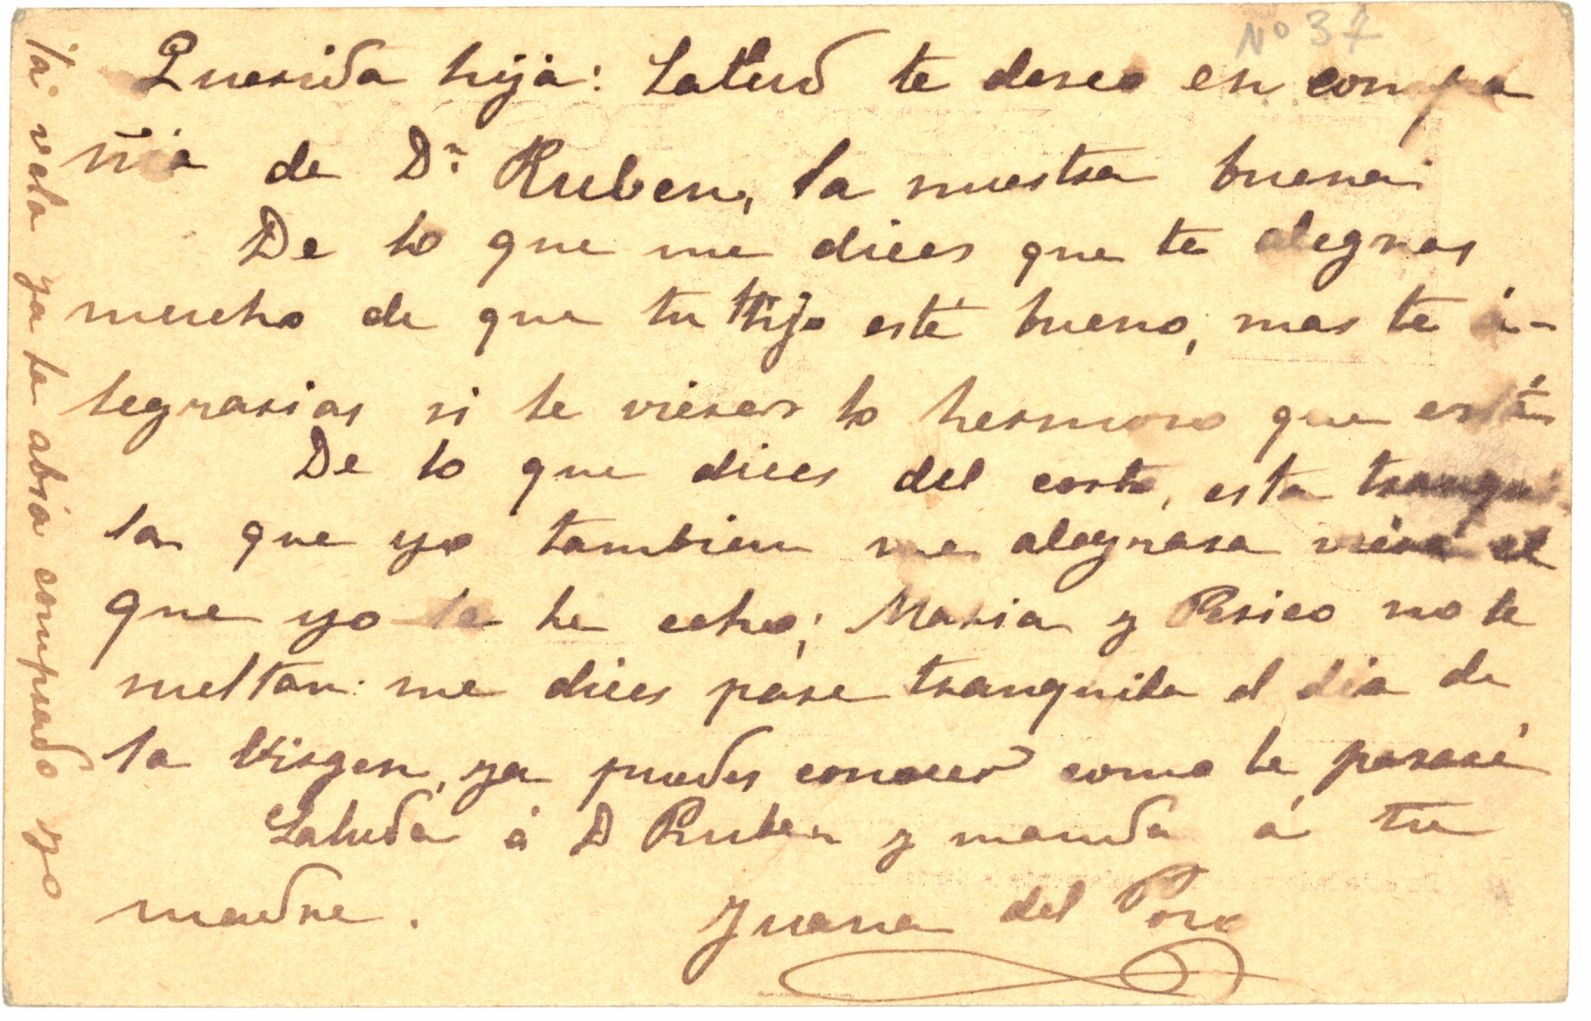 Nº 37
Querida hija: Salud te deseo en compa
ñia de Dn Ruben, la nuestra buena.
De lo que me dices que te alegras
mucho de que tu Hijo esté bueno, mas te á-
legrarias si le vieses lo hermoso que está
De lo que dices del corte, esta tranqui
la que yo tambien me alegrara viera el
que yo le he echo; Maria y Perico no te
sueltan. me dices pase tranquila el dia de
la Virgen, ya puedes conocer como le pasaré
Saluda á D Ruben y manda á tu
madre.
Juana del Pozo
la vela ya la abia comprado yo